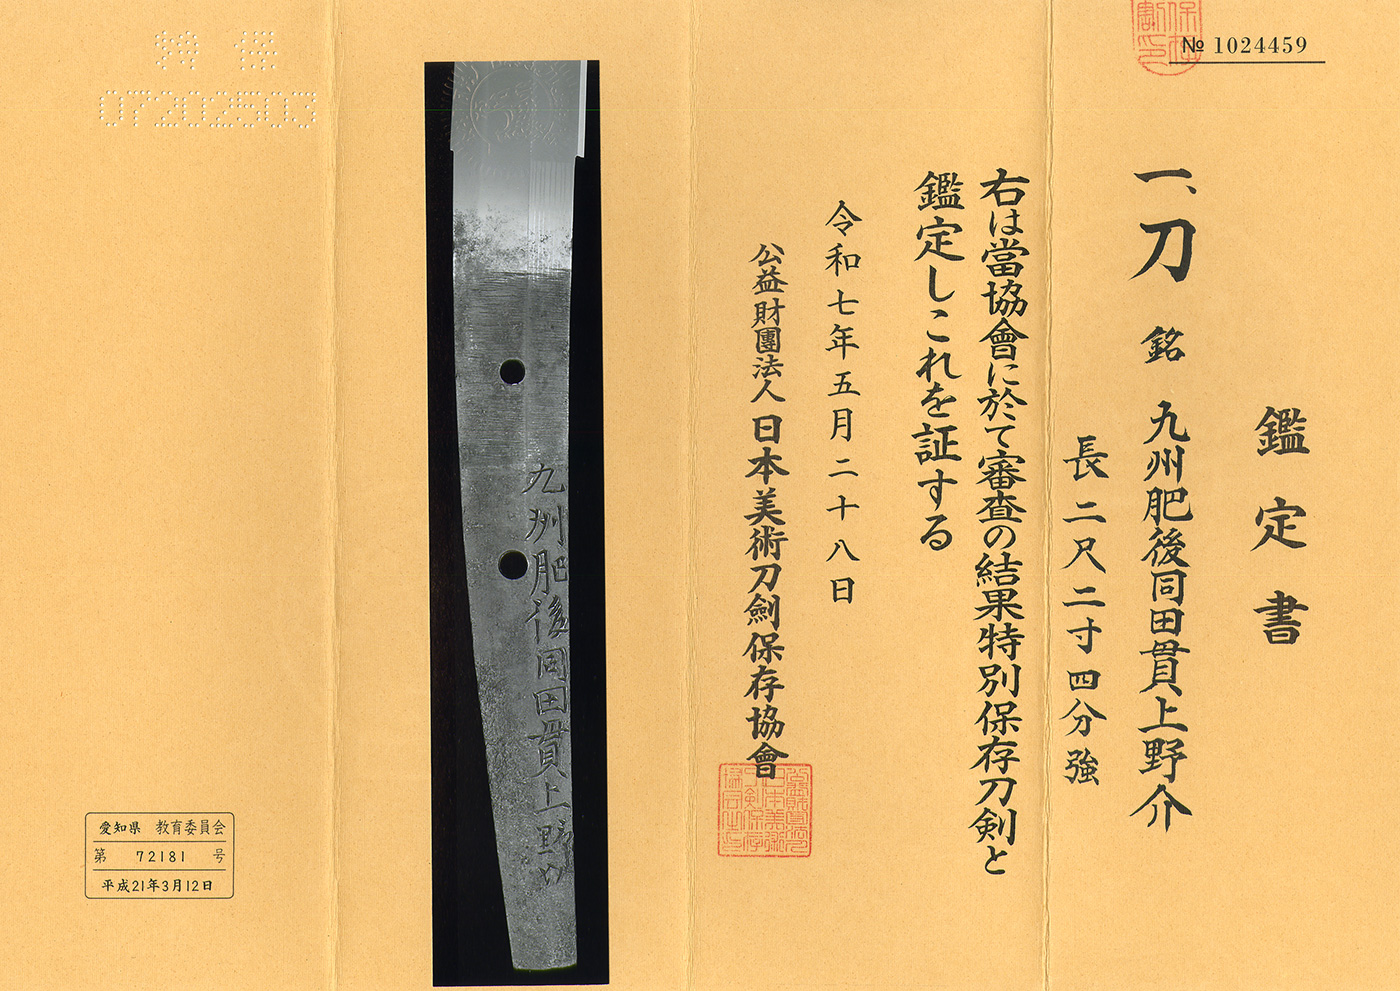 № 1024459
鑑定書
一、刀 銘 九州肥後同田貫上野介
長二尺二寸四分強
右は當協會に於て審査の結果特別保存刀剣と
鑑定しこれを証する
令和七年五月二十八日
公益財團法人 日本美術刀劍保存協會
九州肥後同田貫上野介
特 保
07202503
愛知県 教育委員会
第 72181 号
平成21年3月12日